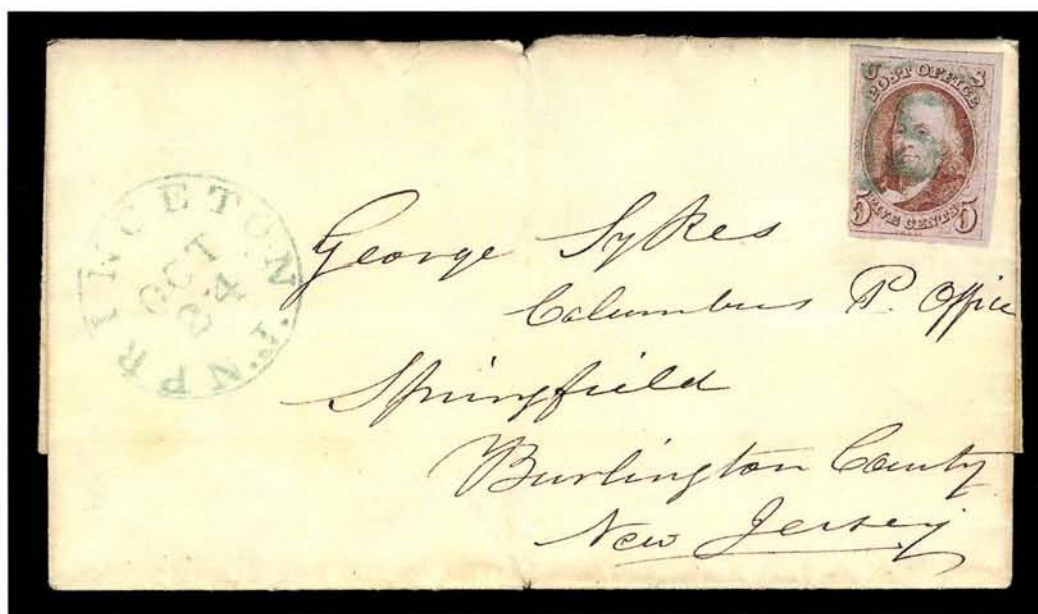 U S
POST OFFICE
FIVE CENTS
5 5
PRINCETON N.J.
OCT
24
George Sykes
Columbus P. Office
Springfield
Burlington County
New Jersey